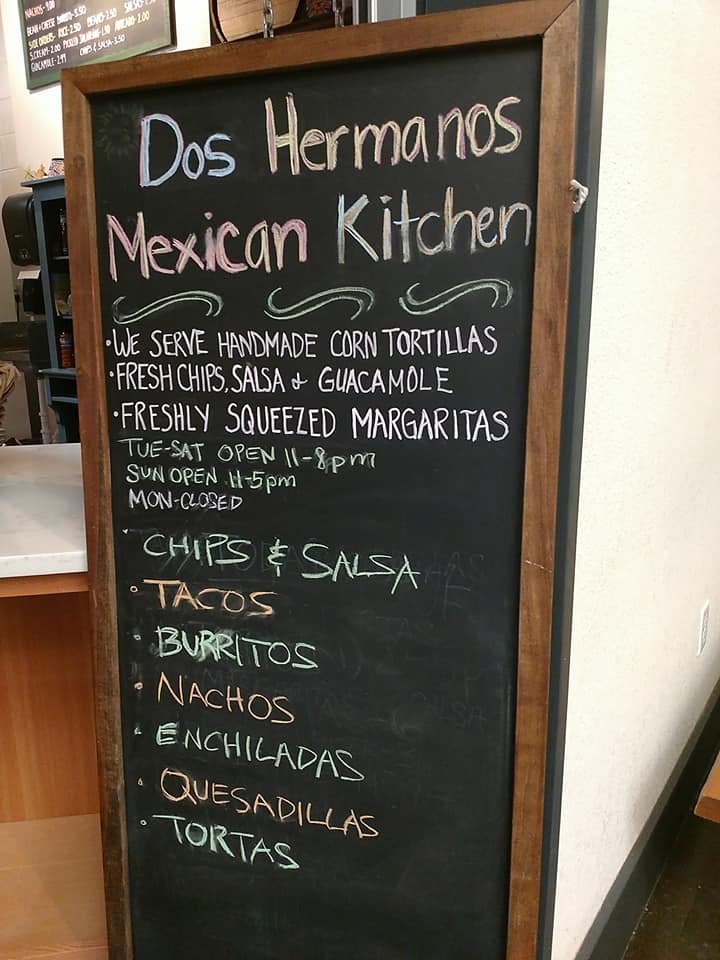 NACHOS-9.00
BEAN & CHEESE BURRITO-5.50
SIDE ORDERS: RICE-2.50 BEANS-2.50 SALSAS-1.50
S.CREAM-2.00 PICKLED JALAPEÑO-1.50 AVOCADO-2.00
GUACAMOLE-2.99 CHIPS & SALSA-3.50
Dos Hermanos
Mexican Kitchen
•WE SERVE HANDMADE CORN TORTILLAS
•FRESH CHIPS, SALSA & GUACAMOLE
•FRESHLY SQUEEZED MARGARITAS
TUE-SAT OPEN 11-8pm
SUN OPEN 11-5pm
MON-CLOSED
• CHIPS & SALSA
• TACOS
• BURRITOS
• NACHOS
• ENCHILADAS
• QUESADILLAS
• TORTAS